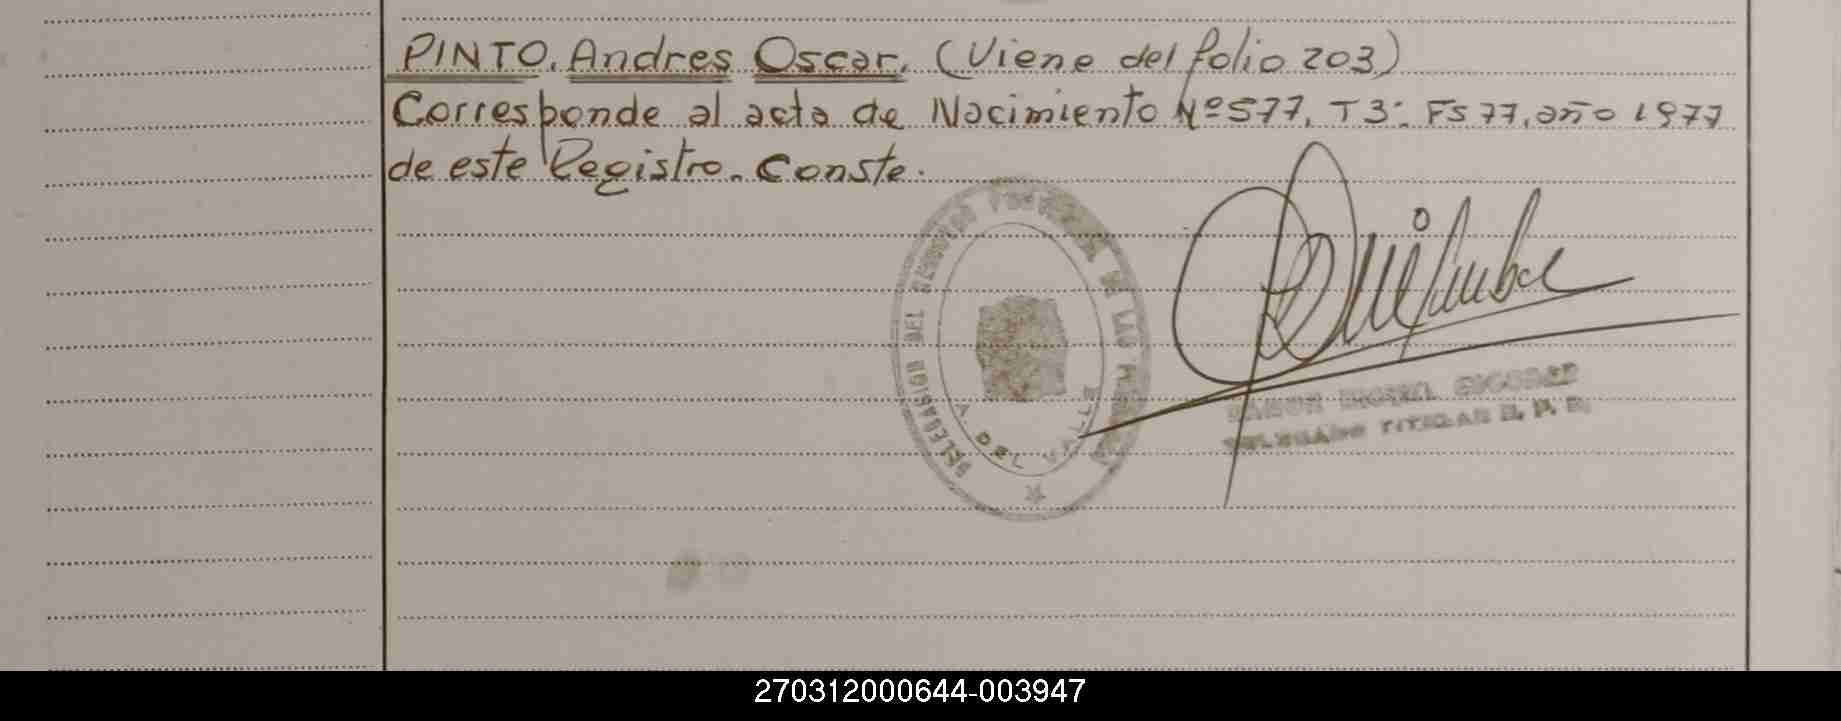 PINTO. Andres Oscar. (Viene del folio 203)
Corresponde al acta de Nacimiento Nº 577. T3: FS 77. año 1977
de este Registro. Conste.
DELEGACION DEL REGISTRO DE LAS
DEL VALLE
DELEGADO TITULAR
270312000644-003947